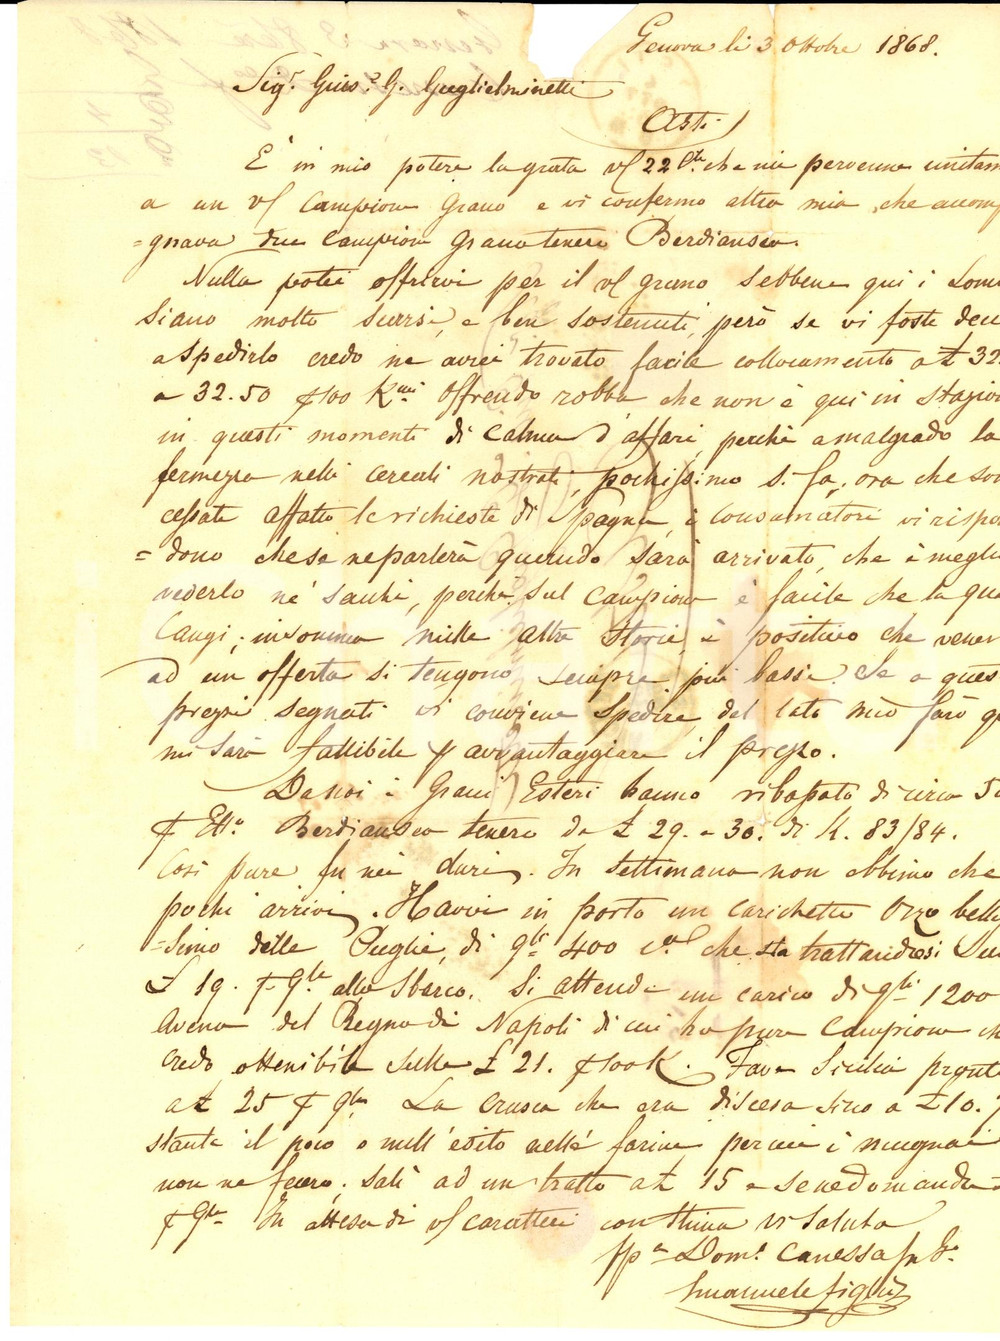 Genova li 3 Ottobre 1868.
Sig.r Gius.e G. Guglielminetti
Asti
E' in mio potere la grata vf 22 che mi pervenne unitam
a un vf Campione Grano e vi confermo altra mia che accomp
=gnava due campioni grano tenero Berdiansca.
Nulla potei offrirvi per il vf grano sebbene qui i
siano molto scarsi, e ben sostenuti, però se vi foste deci
a spedirlo credo ne avrei trovato facile collocamento a £ 32.
a 32.50 100 K offrendo robba che non è qui in stagion
in questi momenti di calma d'affari perchè amalgrado la
fermezza nelli cereali nostrali, pochissimo si fa, ora che son
cessate affatto le richieste di Spagna, i consumatori vi rispon
=dono che se ne parlerà quando sarà arrivato, che è meglio
vederlo ne' sacchi, perchè sul Campione è facile che la qua
Cangi, insomma mille altre storie, è positivo che vener
ad un offerta si tengono sempre più bassi. Se a quest
prezzi segnati vi conviene spedire, dal lato mio farò q
mi sarà fattibile p avvantaggiare il prezzo.
Da noi i Grani Esteri hanno ribassato di circa 50
Ett.o Berdiansca tenero da £ 29. a 30. di K. 83/84.
Così pure fu nei duri. In settimana non ebbimo che
pochi arrivi. Havvi in porto un carichetto Orzo bellis
=simo delle Puglie, di q.li 400 c.a che sta trattandosi sul
£ 19. q.le allo sbarco. Si attende un carico di q.li 1200
Avena del Regno di Napoli di cui ho pure Campione ch
credo ottenibile sulle £ 21. 100 K. Fave Sicilia pronte
a £ 25 q.le La crusca che era discesa sino a £ 10.
stante il poco o null'esito delle farine perciò i mugnai
non ne fecero, salì ad un tratto a £ 15 e se ne domanda
q.le In attesa di vf caratteri con stima vi saluto
Dom.o Canessa fu
Emanuele figlio